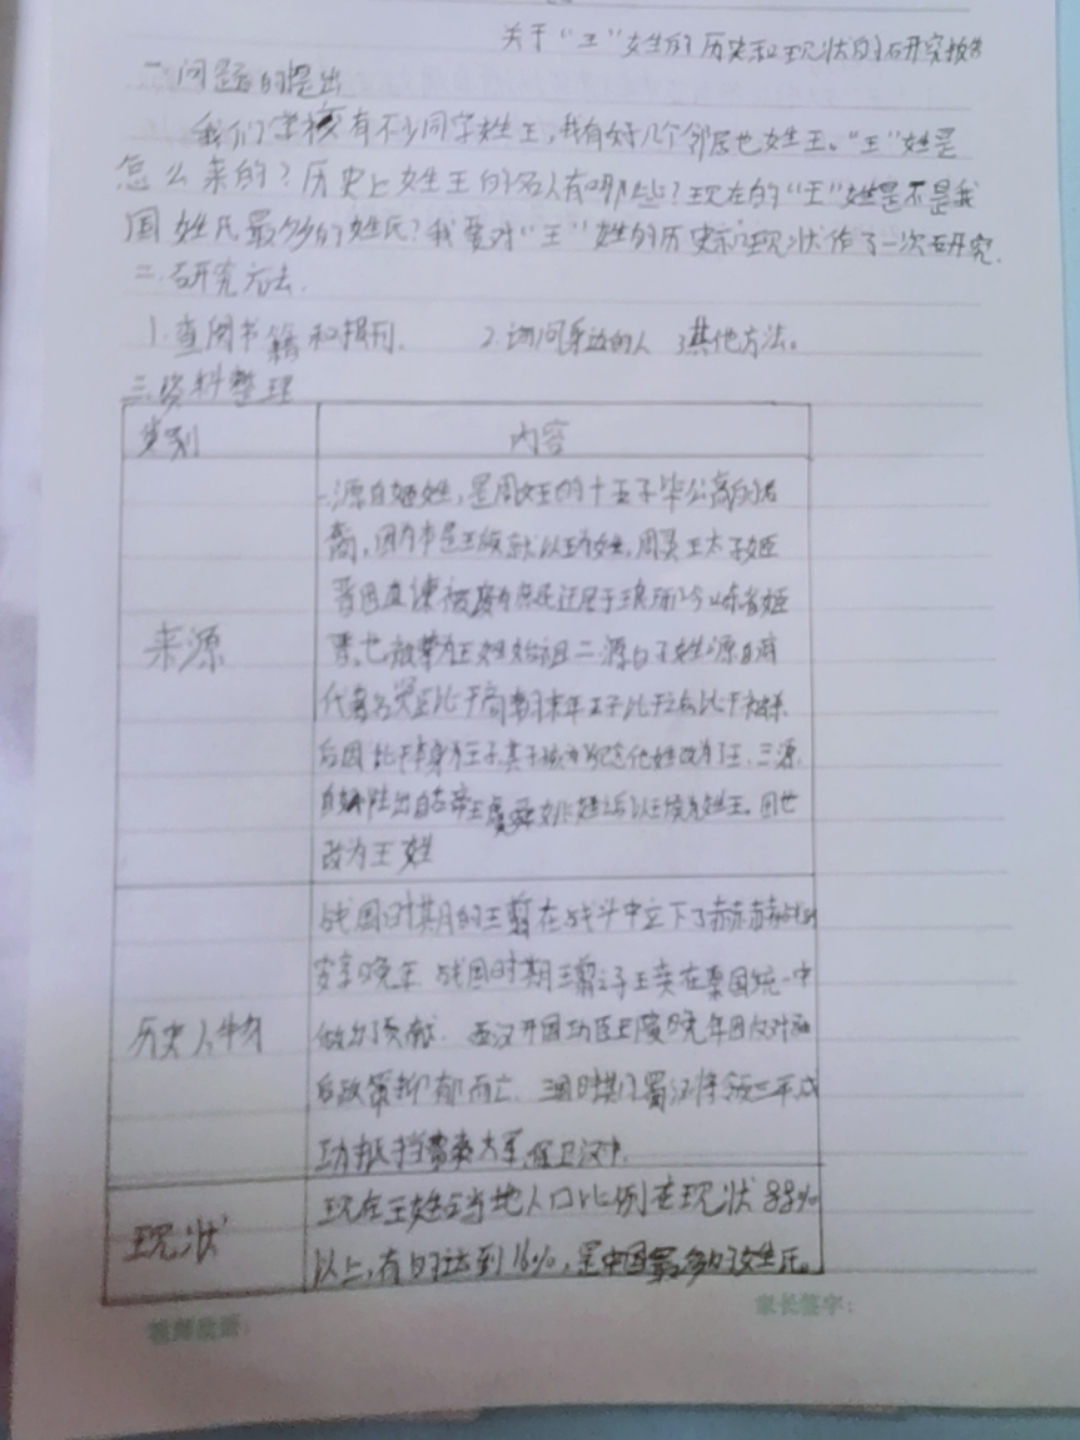 关于“王”姓的历史和现状的研究报告
一、问题的提出
我们学校有不少同学姓王,我有好几个邻居也姓王。“王”姓是
怎么来的?历史上姓王的名人有哪些?现在的“王”姓是不是我
国姓氏最多的姓氏?我要对“王”姓的历史和现状作了一次研究.
二.研究方法.
1.查阅书籍和报刊. 2.询问身边的人 3其他方法。
三.资料整理
类别 内容
来源
一源自姬姓,是周文王的十五子毕公高的后
裔,因为本是王族就以王为姓,周灵王太子姬
晋因直谏被废为庶民迁居于琅琊今山东省姬
晋也被尊为王姓始祖二.源自子姓源自商
代著名 比干商朝末年王子比干 比干被杀
后因比干本身为王子其子孙为纪念他姓改为了王.三源
自妫姓出自古帝王虞舜 以王族为姓王。因世
改为王姓
历史人物
战国时期的王翦在战斗中立下了赫赫战功
安享晚年 战国时期王翦之子王贲在秦国统一中
做出了贡献. 西汉开国功臣王陵晚年因反对
后政策抑郁而亡. 三国时期蜀汉将领王平成
功抵挡曹 大军,保卫汉中.
现状
现在王姓占当地人口比例在现状88%
以上,有的达到16%,是中国最多的姓氏。
家长签字: